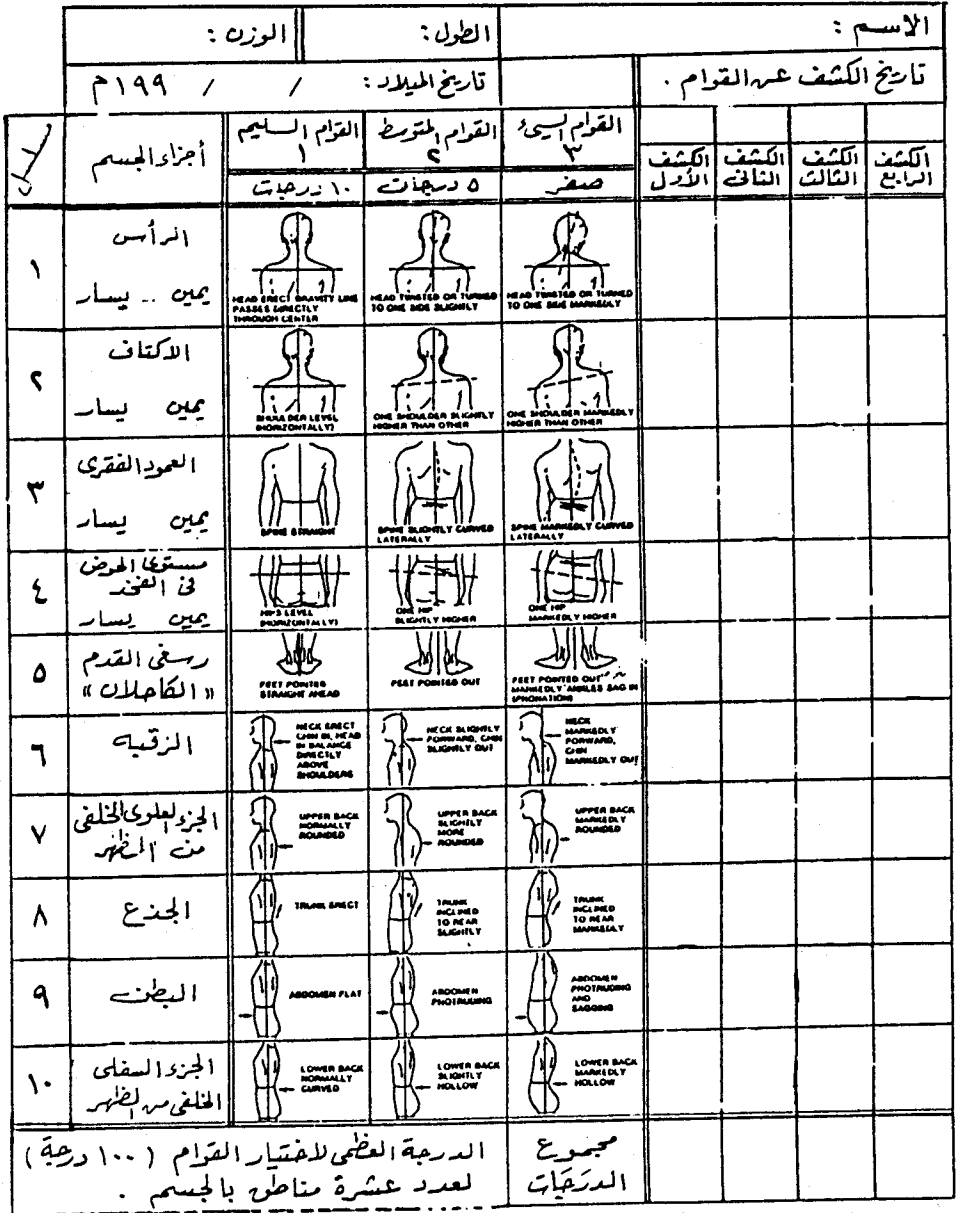 الاسم :
الطول :
الوزن :
تاريخ الكشف عن القوام .
تاريخ الميلاد : / / ١٩٩م
الكشف الأول
الكشف الثاني
الكشف الثالث
الكشف الرابع
القوام السيئ
٣
صفر
القوام المتوسط
٢
٥ درجات
القوام السليم
١
١٠ درجات
أجزاء الجسم
١
الرأس
يمين .. يسار
HEAD ERECT GRAVITY LINE
PASSES DIRECTLY
THROUGH CENTER
HEAD TWISTED OR TURNED
TO ONE SIDE SLIGHTLY
HEAD TWISTED OR TURNED
TO ONE SIDE MARKEDLY
٢
الاكتاف
يمين يسار
SHOULDER LEVEL
(HORIZONTALLY)
ONE SHOULDER SLIGHTLY
HIGHER THAN OTHER
ONE SHOULDER MARKEDLY
HIGHER THAN OTHER
٣
العمود الفقرى
يمين يسار
SPINE STRAIGHT
SPINE SLIGHTLY CURVED
LATERALLY
SPINE MARKEDLY CURVED
LATERALLY
٤
مستوى الحوض
فى الفخذ
يمين يسار
HIPS LEVEL
(HORIZONTALLY)
ONE HIP
SLIGHTLY HIGHER
ONE HIP
MARKEDLY HIGHER
٥
رسغى القدم
« الكاحلان »
FEET POINTED
STRAIGHT AHEAD
FEET POINTED OUT
FEET POINTED OUT
MARKEDLY ANKLES SAG IN
(PRONATION)
٦
الرقبة
NECK ERECT
CHIN IN, HEAD
IN BALANCE
DIRECTLY
ABOVE
SHOULDERS
NECK SLIGHTLY
FORWARD, CHIN
SLIGHTLY OUT
NECK
MARKEDLY
FORWARD,
CHIN
MARKEDLY OUT
٧
الجزء العلوى الخلفى
من الظهر
UPPER BACK
NORMALLY
ROUNDED
UPPER BACK
SLIGHTLY
MORE
ROUNDED
UPPER BACK
MARKEDLY
ROUNDED
٨
الجذع
TRUNK ERECT
TRUNK
INCLINED
TO REAR
SLIGHTLY
TRUNK
INCLINED
TO REAR
MARKEDLY
٩
البطن
ABDOMEN FLAT
ABDOMEN
PROTRUDING
ABDOMEN
PROTRUDING
AND
SAGGING
١٠
الجزء السفلى
الخلفى من الظهر
LOWER BACK
NORMALLY
CURVED
LOWER BACK
SLIGHTLY
HOLLOW
LOWER BACK
MARKEDLY
HOLLOW
مجموع
الدرجات
الدرجة العظمى لاختبار القوام ( ١٠٠ درجة )
لعدد عشرة مناطق بالجسم .